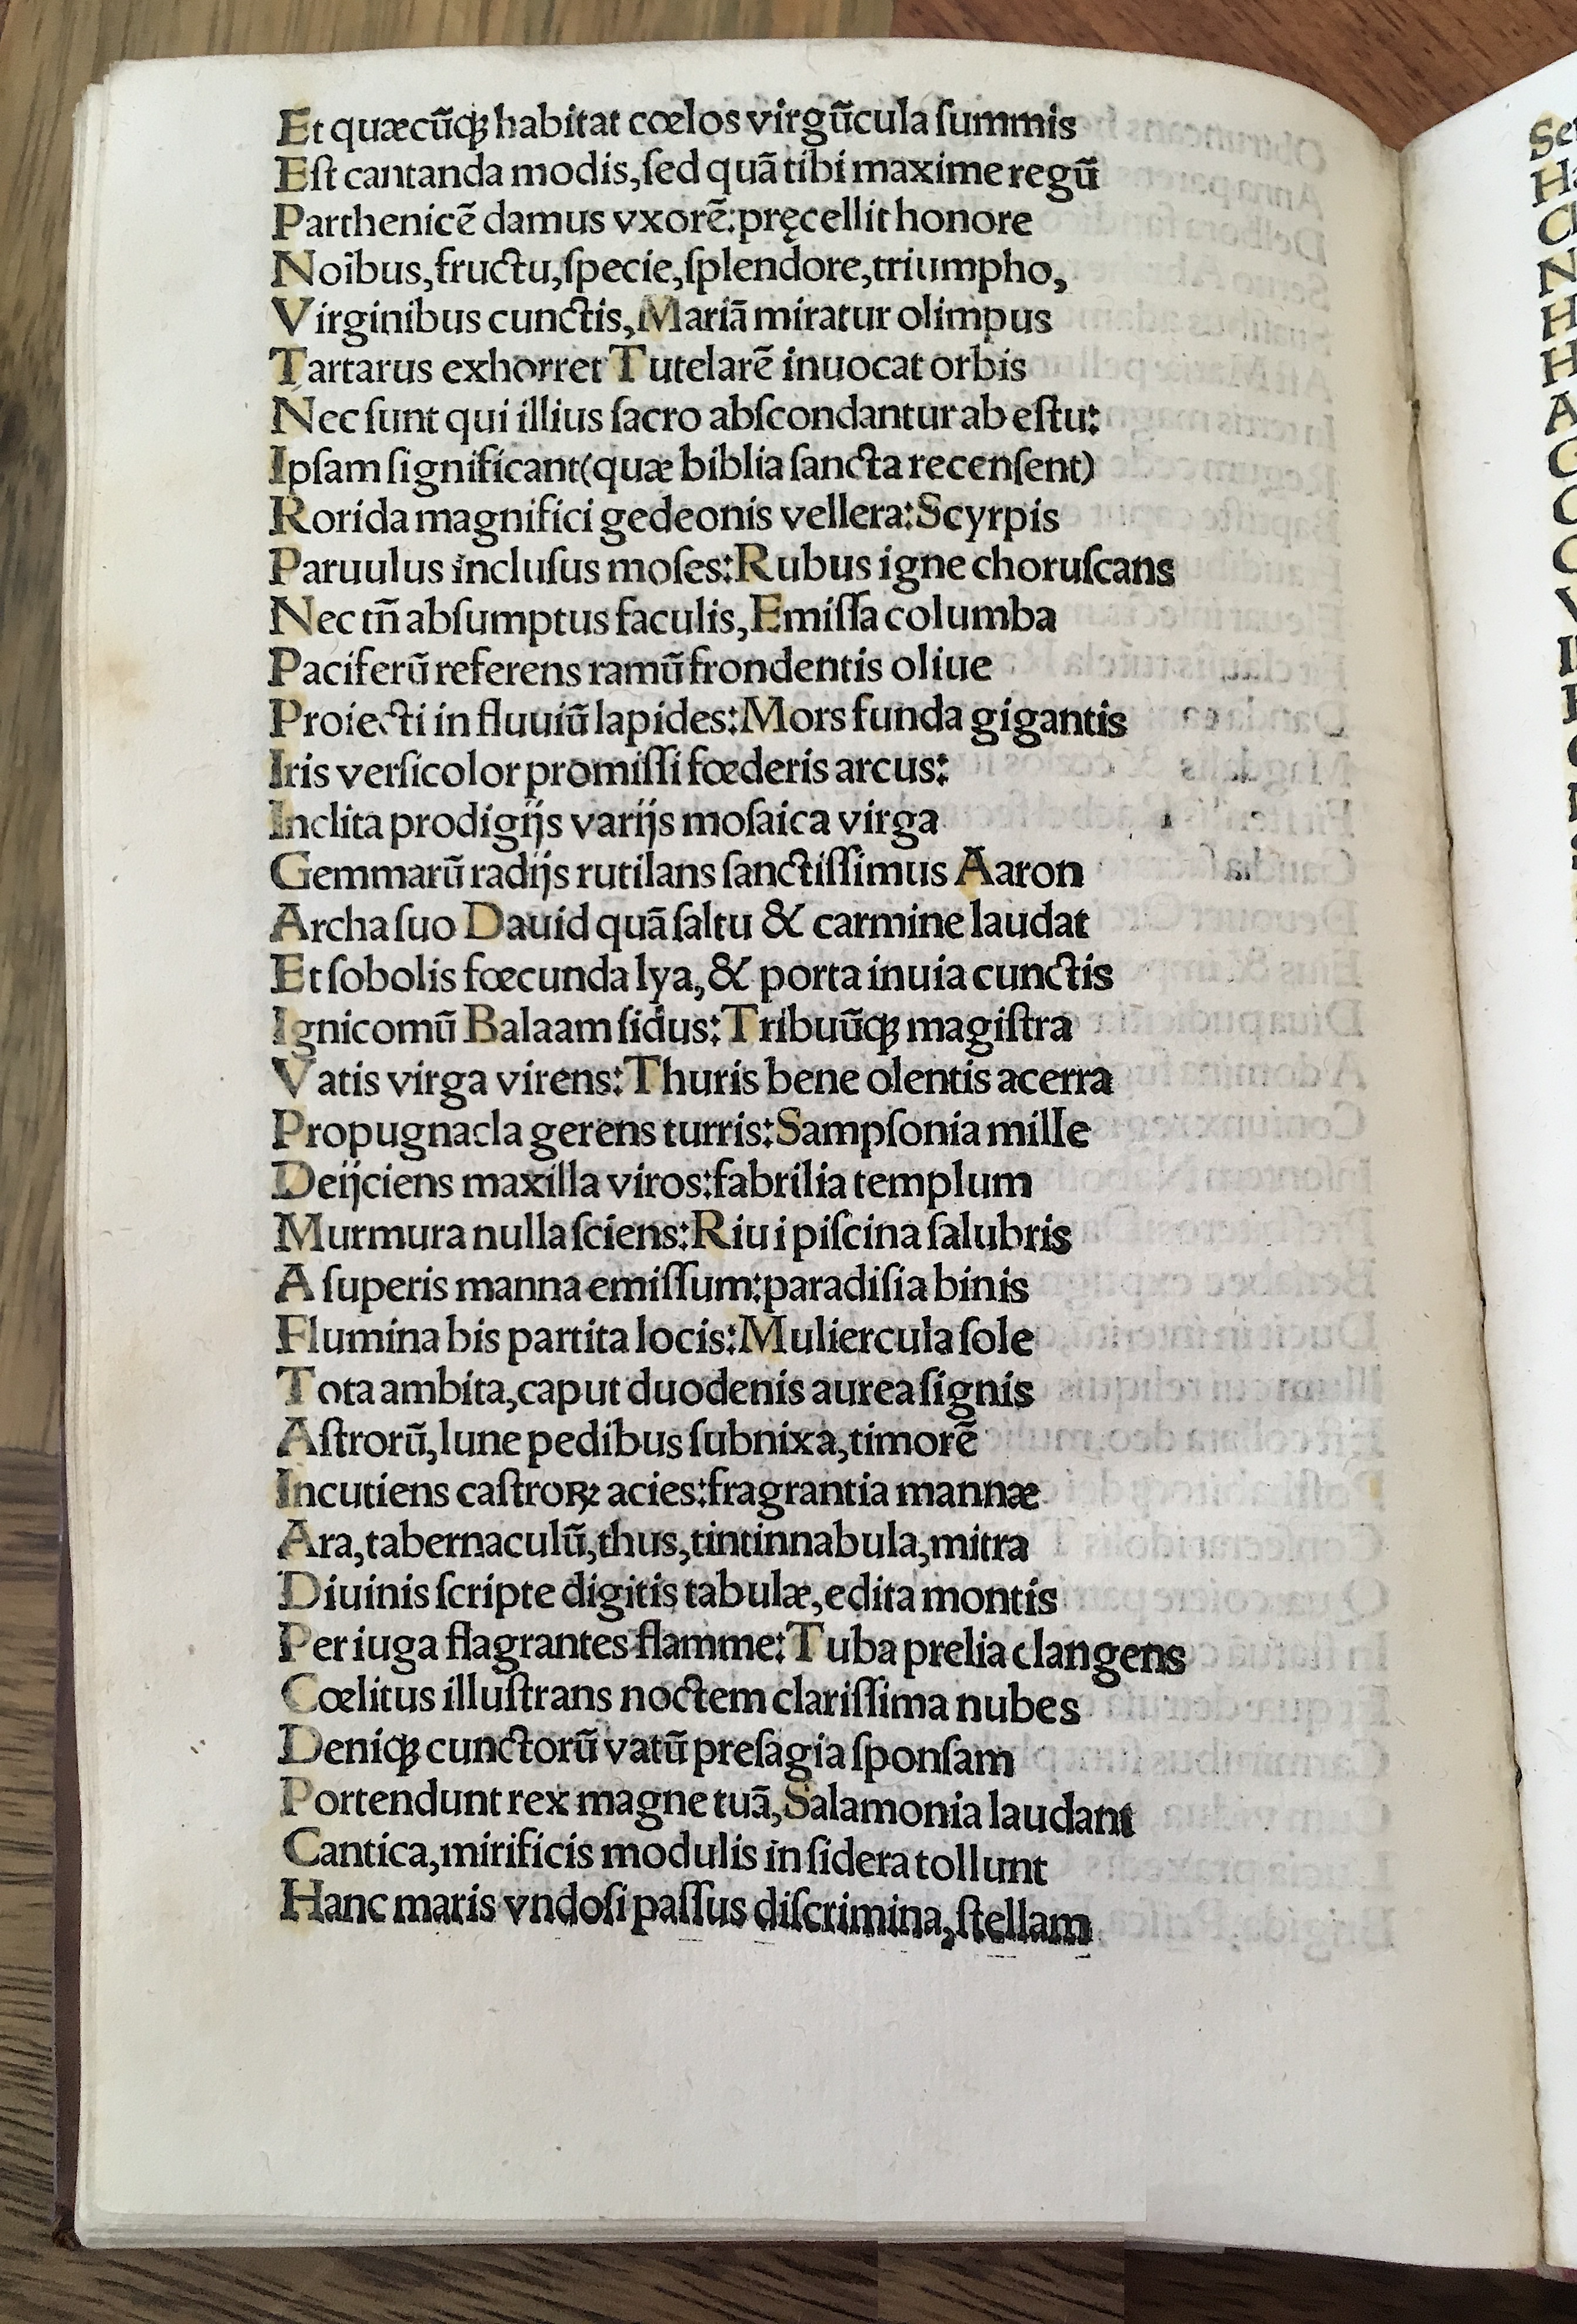 Et quæcũqꝫ habitat cœlos virgũcula ſummis
Eſt cantanda modis, ſed quã tibi maxime regũ
Parthenicẽ damus vxorẽ: pręcellit honore
Noĩbus, fructu, ſpecie, ſplendore, triumpho,
Virginibus cunctis, Mariã miratur olimpus
Tartarus exhorret Tutelarẽ inuocat orbis
Nec ſunt qui illius ſacro abſcondantur ab eſtu:
Ipſam ſignificant (quæ biblia ſancta recenſent)
Rorida magnifici gedeonis vellera: Scyrpis
Paruulus incluſus moſes: Rubus igne choruſcans
Nec tñ abſumptus faculis, Emiſſa columba
Paciferũ referens ramũ frondentis oliue
Proiecti in fluuiũ lapides: Mors funda gigantis
Iris verſicolor promiſſi fœderis arcus:
Inclita prodigijs varijs moſaica virga
Gemmarũ radijs rutilans ſanctiſſimus Aaron
Archa ſuo Dauid quã ſaltu & carmine laudat
Et ſobolis fœcunda lya, & porta inuia cunctis
Ignicomũ Balaam ſidus: Tribuũqꝫ magiſtra
Vatis virga virens: Thuris bene olentis acerra
Propugnacla gerens turris: Sampſonia mille
Deijciens maxilla viros: fabrilia templum
Murmura nulla ſciens: Riui piſcina ſalubris
A ſuperis manna emiſſum: paradiſia binis
Flumina bis partita locis: Muliercula ſole
Tota ambita, caput duodenis aurea ſignis
Aſtrorũ, lune pedibus ſubnixa, timorẽ
Incutiens caſtroꝝ acies: fragrantia mannæ
Ara, tabernaculũ, thus, tintinnabula, mitra
Diuinis ſcripte digitis tabulæ, edita montis
Per iuga flagrantes flamme: Tuba prelia clangens
Cœlitus illuſtrans noctem clariſſima nubes
Deniqꝫ cunctorũ vatũ preſagia ſponſam
Portendunt rex magne tuã, Salamonia laudant
Cantica, mirificis modulis in ſidera tollunt
Hanc maris vndoſi paſſus diſcrimina, ſtellam